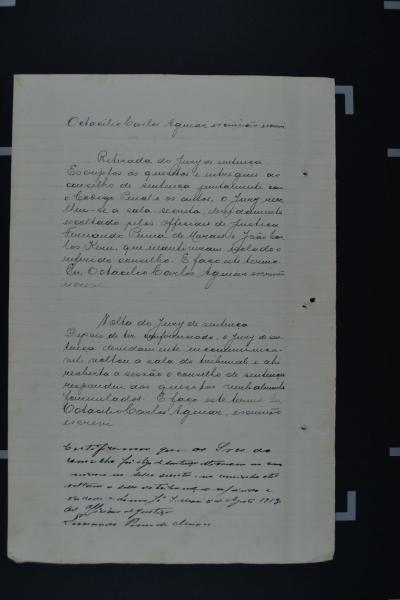 Octacilio Carlos Aguiar escrivão escrevi
Retirada do Jury de sentença
Escriptos os quesitos e entregues ao
concelho de sentença juntamente co
o Codigo Penal e os autos, o Jury reco
lheu-se a sala secreta, devidamente
escoltado pelos officiaes de Justiça
Fernando Penna de Moraes e João Car
los Klein, que mantiveram isolado o
referido conselho. E faço este termo.
Eu, Octacilio Carlos Aguiar escrivão
escrevi
Volta do Jury de sentença
Depois de ter conferenciado, o jury de sen
tença devidamente incommunica
vel voltou a sala do tribunal e ahi
reaberta a sessão o conselho de sentença
respondeu aos quesitos verbalmente
formulados. E faço este termo Eu
Octacilio Carlos Aguiar, escrivão
escrevi
Certificamos que os Srs do
conselho
de agosto 1913
Os officiaes de justiça
Fernando Penna de Moraes